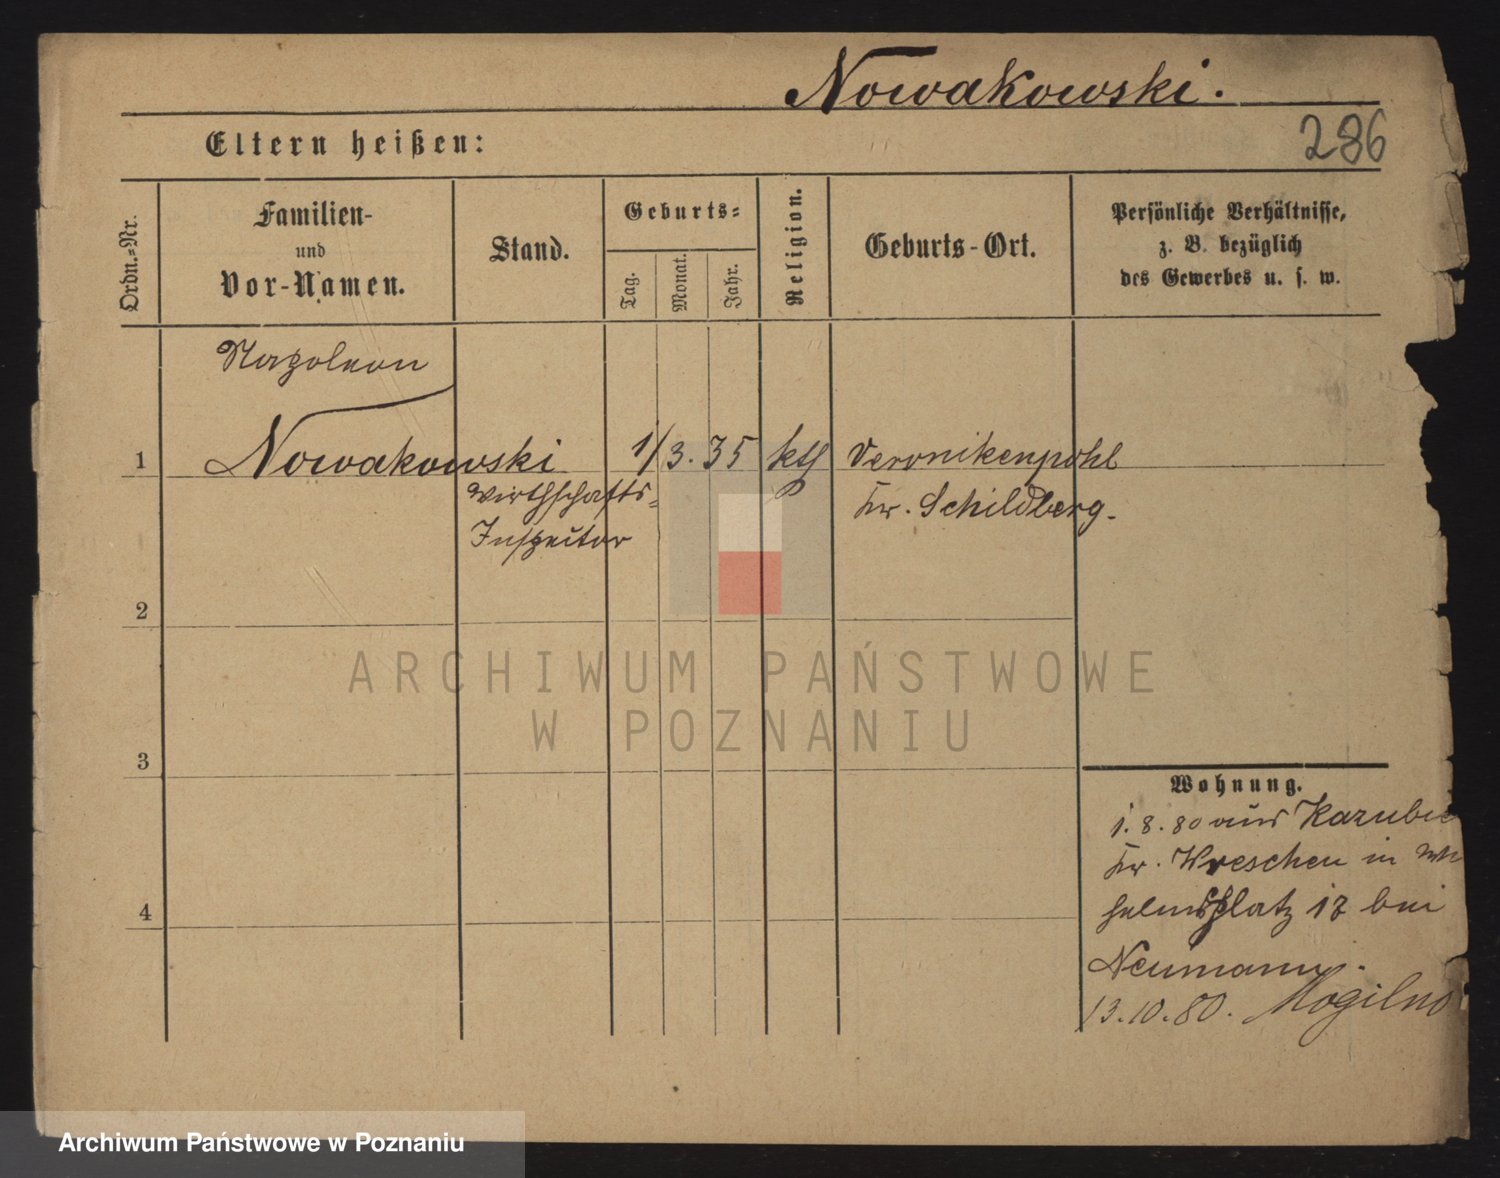 Nowakowski.
286
Eltern heißen:
Ordn.=Nr.
Familien-
und
Vor-Namen.
Stand.
Geburts=
Tag.
Monat.
Jahr.
Religion.
Geburts-Ort.
Persönliche Verhältnisse,
z. B. bezüglich
des Gewerbes u. s. w.
Napoleon
1 Nowakowski 1/3.35 kth Veronikenpohl
Wirthschafts= Kr. Schildberg.
Inspector
2
3
4
Wohnung.
1.8.80 aus Karubie
Kr. Wreschen in Wil
helmsplatz 17 bei
Neumann.
13.10.80. Mogilno
ARCHIWUM PAŃSTWOWE
W POZNANIU
Archiwum Państwowe w Poznaniu